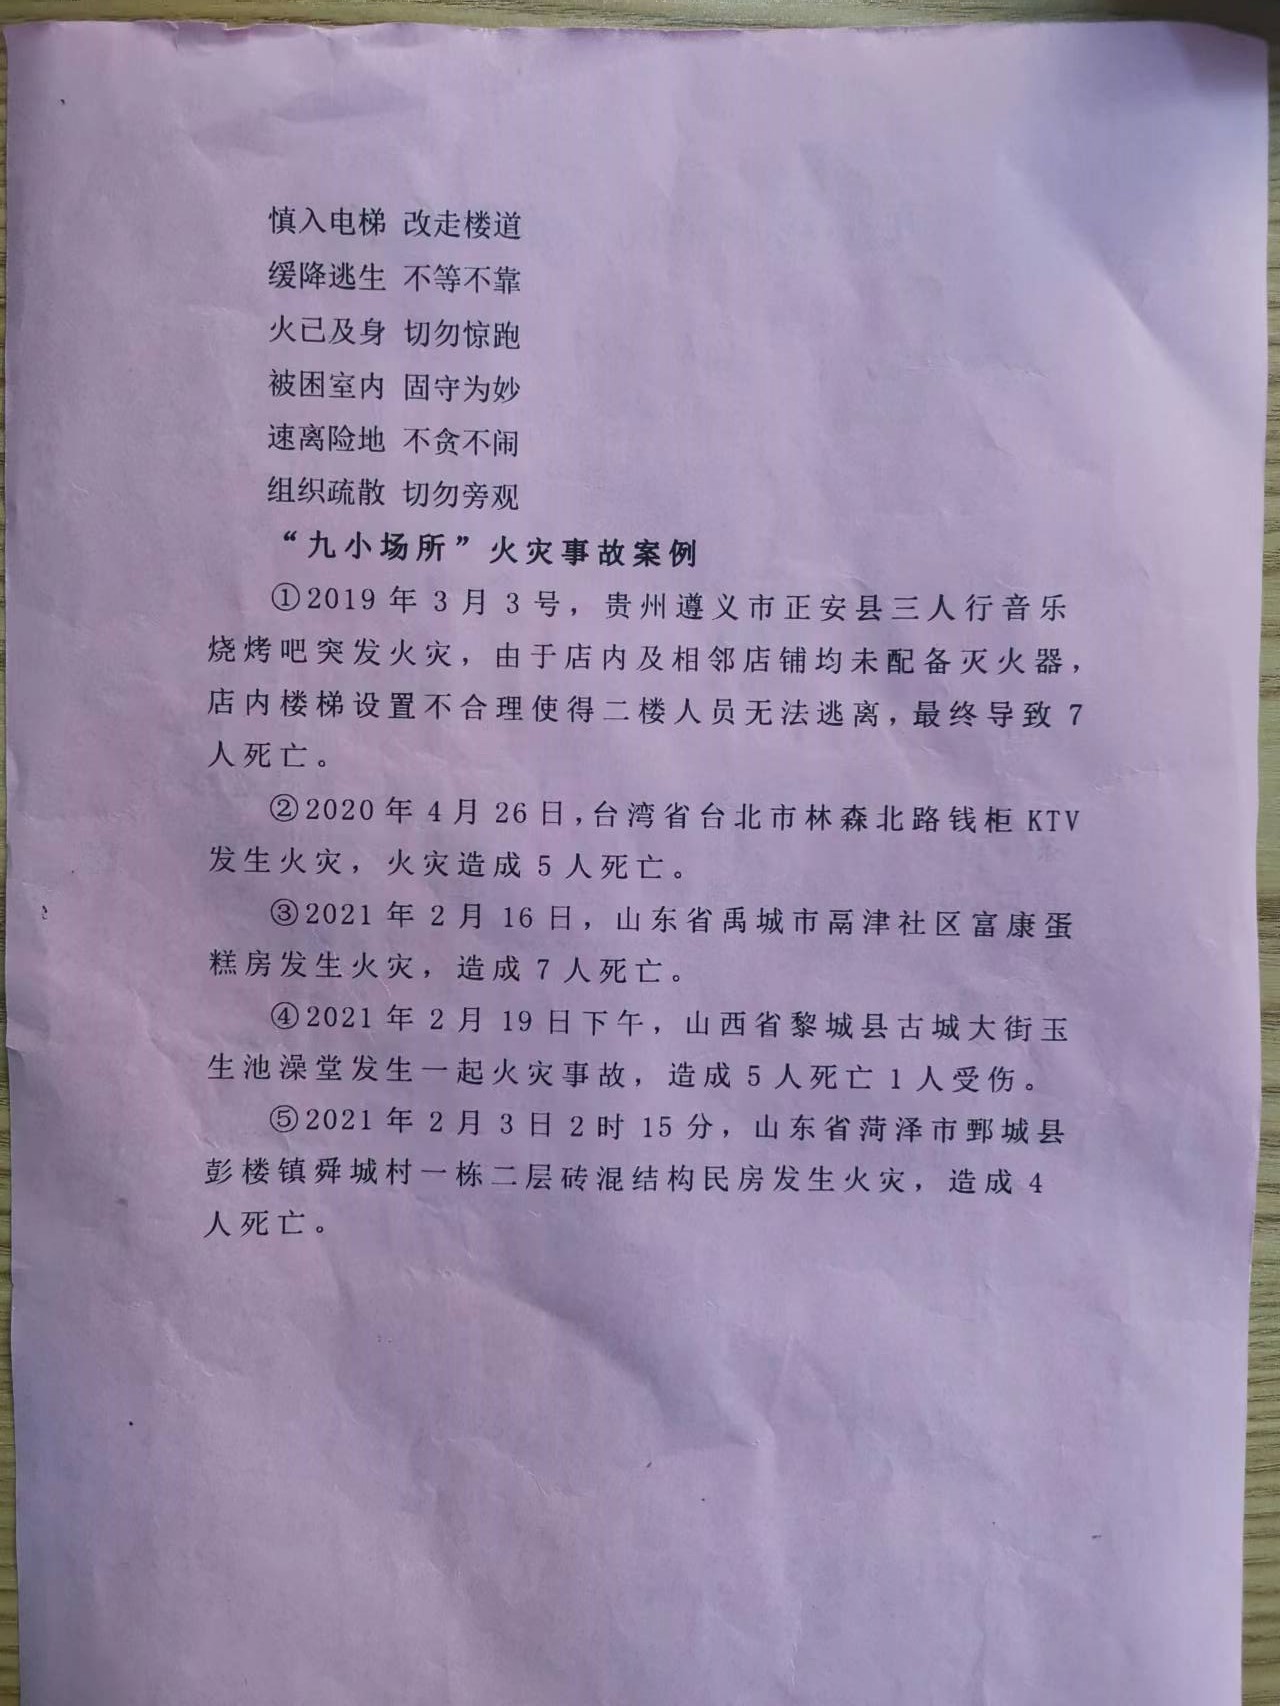 慎入电梯 改走楼道
缓降逃生 不等不靠
火已及身 切勿惊跑
被困室内 固守为妙
速离险地 不贪不闹
组织疏散 切勿旁观
“九小场所”火灾事故案例
①2019年3月3号，贵州遵义市正安县三人行音乐
烧烤吧突发火灾，由于店内及相邻店铺均未配备灭火器，
店内楼梯设置不合理使得二楼人员无法逃离，最终导致7
人死亡。
②2020年4月26日，台湾省台北市林森北路钱柜KTV
发生火灾，火灾造成5人死亡。
③2021年2月16日，山东省禹城市鬲津社区富康蛋
糕房发生火灾，造成7人死亡。
④2021年2月19日下午，山西省黎城县古城大街玉
生池澡堂发生一起火灾事故，造成5人死亡1人受伤。
⑤2021年2月3日2时15分，山东省菏泽市鄄城县
彭楼镇舜城村一栋二层砖混结构民房发生火灾，造成4
人死亡。